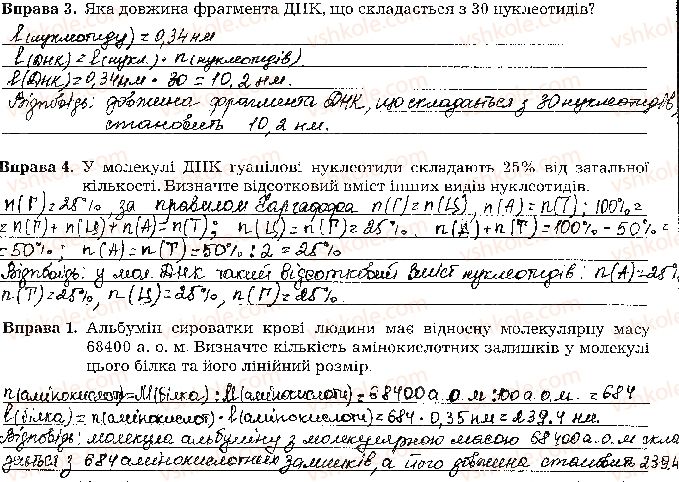 Вправа 3. Яка довжина фрагмента ДНК, що складається з 30 нуклеотидів?
l(нуклеотиду) = 0,34 нм
l(ДНК) = l(нукл.) · n(нуклеотидів)
l(ДНК) = 0,34 нм · 30 = 10,2 нм.
Відповідь: довжина фрагмента ДНК, що складається з 30 нуклеотидів,
становить 10,2 нм.
Вправа 4. У молекулі ДНК гуанілові нуклеотиди складають 25% від загальної
кількості. Визначте відсотковий вміст інших видів нуклеотидів.
n(Г) = 25%, за правилом Чаргаффа n(Г) = n(Ц), n(А) = n(Т); 100% =
= n(Г) + n(Ц) + n(А) = n(Т); n(Ц) = n(Г) = 25%. n(А) + n(Т) = 100% - 50%
= 50%; n(А) = n(Т) = 50% : 2 = 25%.
Відповідь: у мол. ДНК такий відсотковий вміст нуклеотидів: n(А) = 25%
n(Т) = 25%, n(Ц) = 25%, n(Г) = 25%.
Вправа 1. Альбумін сироватки крові людини має відносну молекулярну масу
68400 а. о. м. Визначте кількість амінокислотних залишків у молекулі
цього білка та його лінійний розмір.
n(амінокислот) = M(білка) : M(амінокислоти) = 68400 а.о.м : 100 а.о.м. = 684
l(білка) = n(амінокислот) · l(амінокислоти) = 684 · 0,35 нм = 239,4 нм.
Відповідь: молекула альбуміну з молекулярною масою 68400 а.о.м скла
дається з 684 амінокислотних залишків, а його довжина становить 239,4